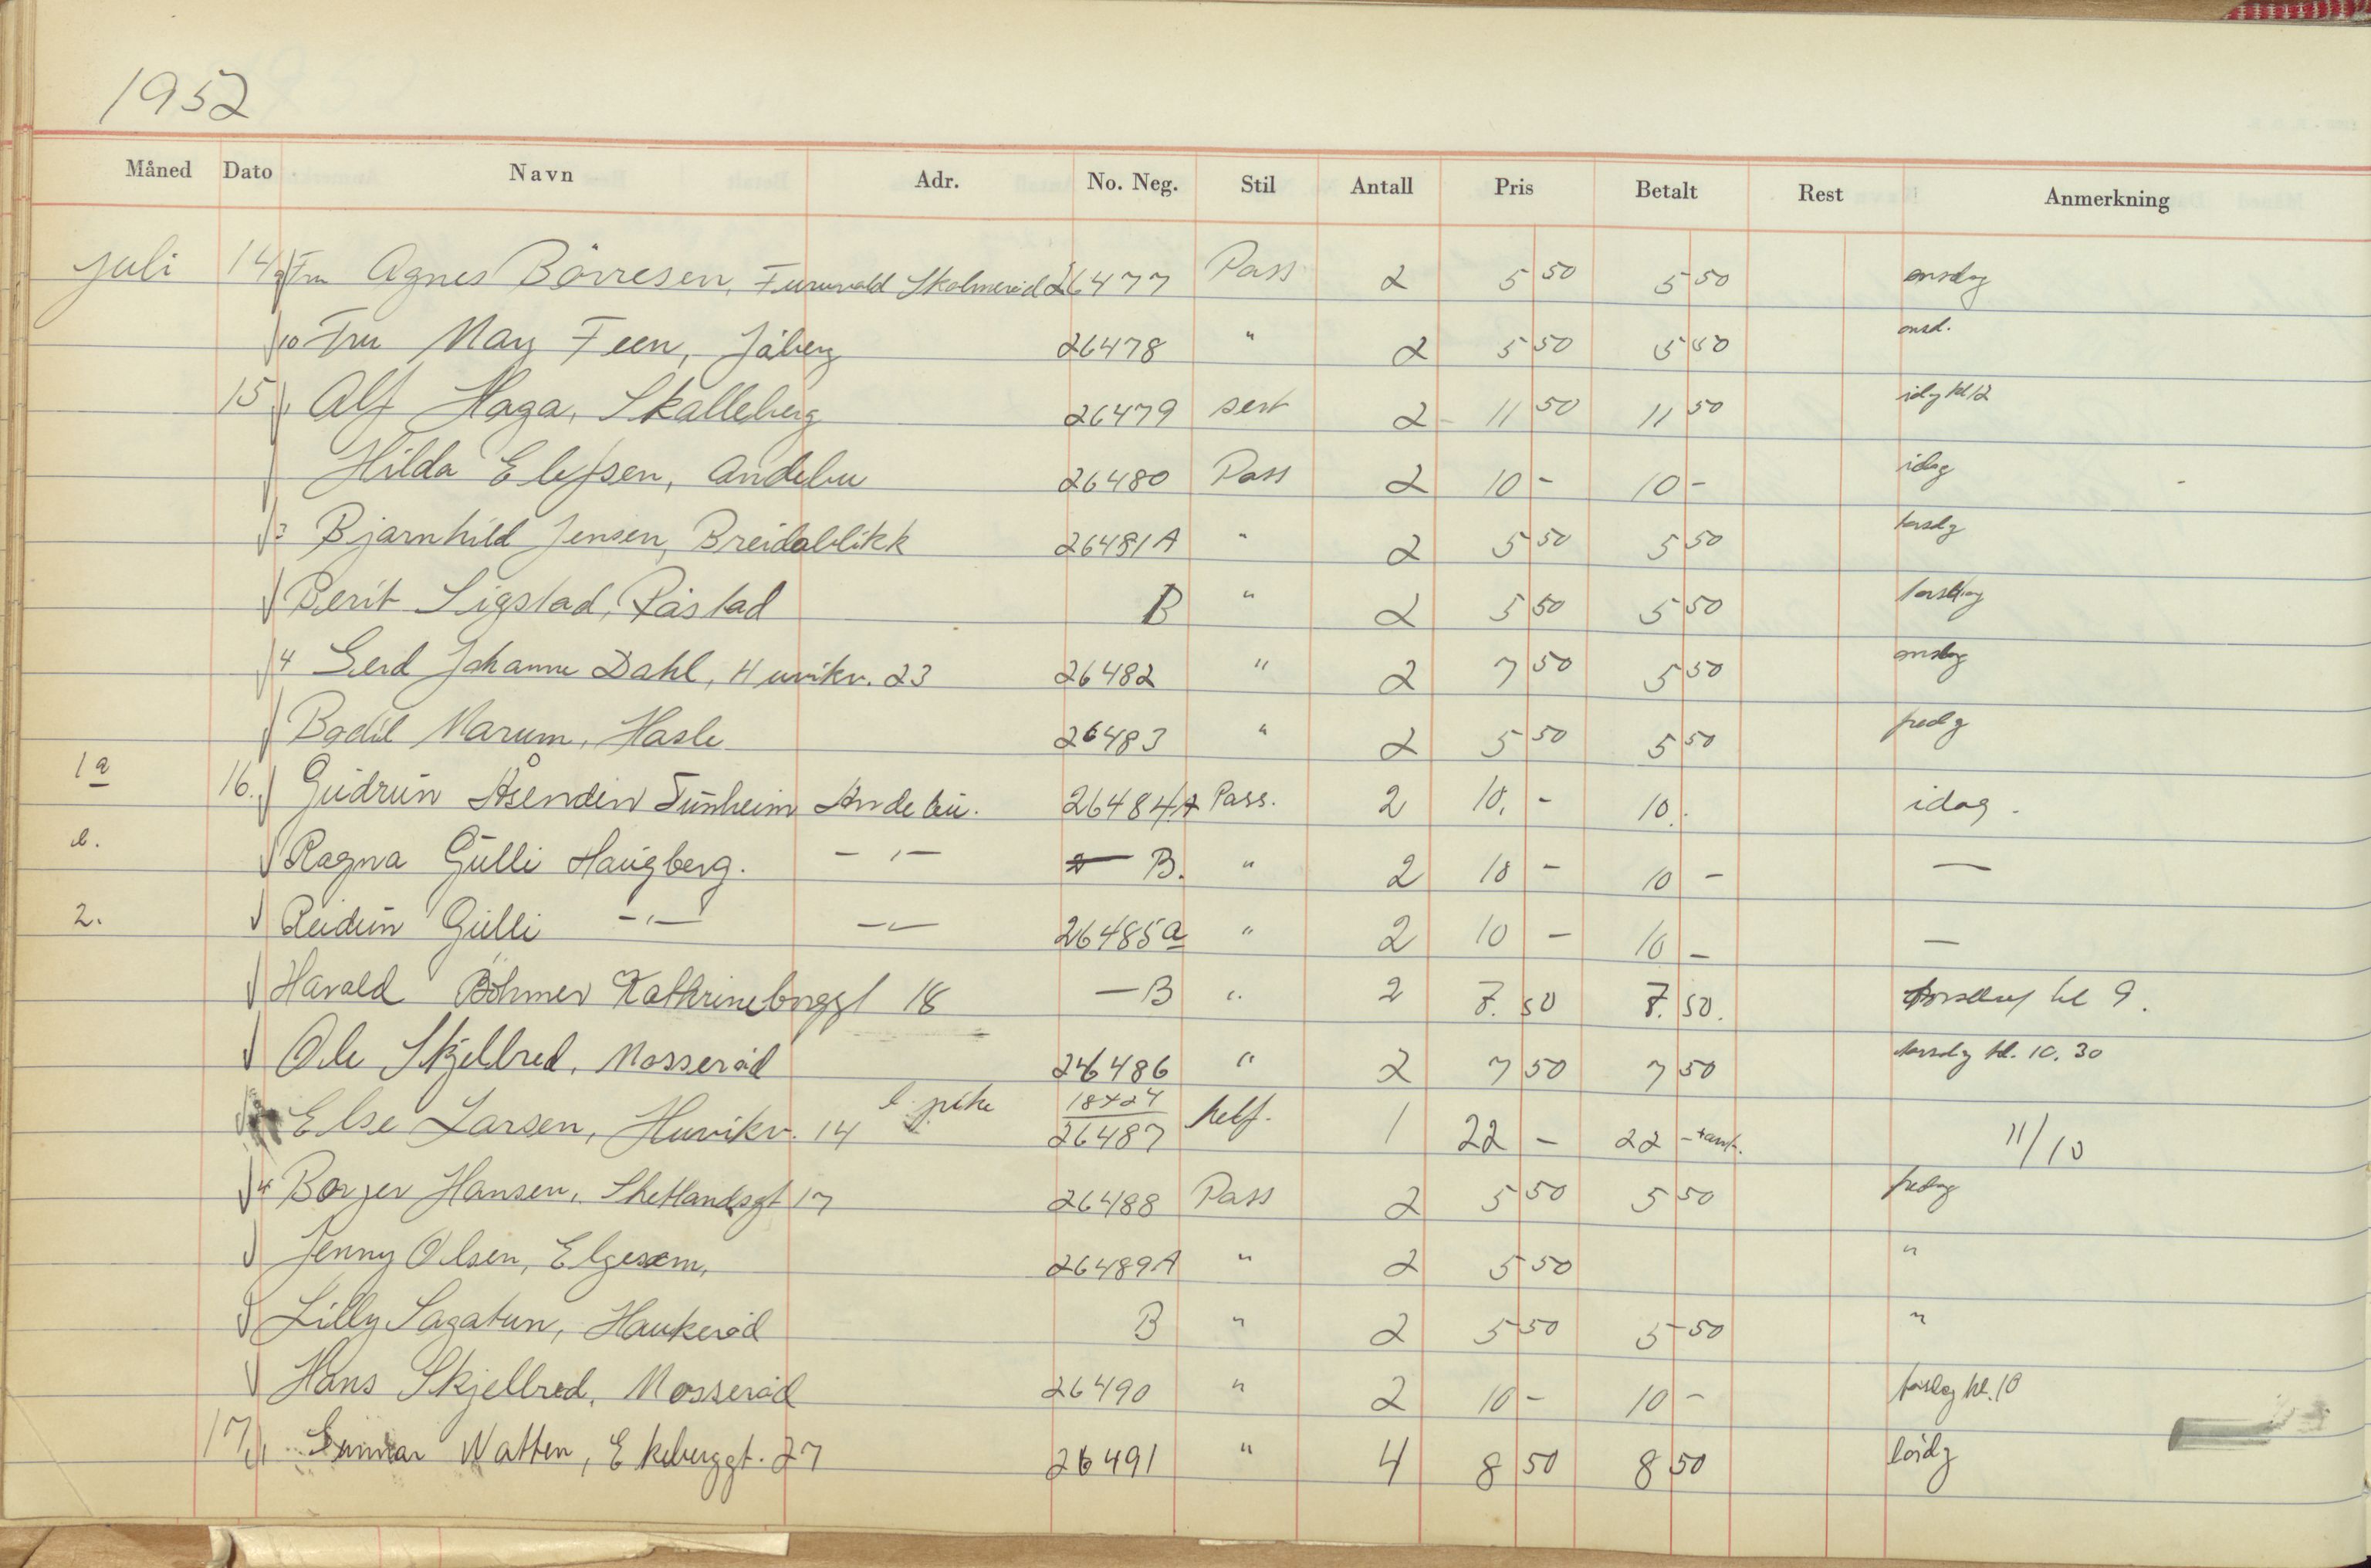 1952
Måned Dato Navn Adr. No. Neg. Stil Antall Pris Betalt Rest Anmerkning
juli 14 9 Fru Agnes Börresen, Furuvald Skolmeröd 26477 Pass 2 5 50 5 50 onsdag
10 Fru May Feen, Jåberg 26478 " 2 5 50 5 50 onsd.
15 Alf Haga, Skalleberg 26479 sert 2 - 11 50 11 50 idag kl 12
Hilda Elefsen, Andebu 26480 Pass 2 10 - 10 - idag
3 Bjarnhild Jensen, Breidablikk 26481A " 2 5 50 5 50 torsdag
Berit Sigstad, Råstad B " 2 5 50 5 50 torsdag
4 Gerd Johanne Dahl, Huvikv. 23 26482 " 2 7 50 5 50 onsdag
Bodil Marum, Hasle 26483 " 2 5 50 5 50 fredag
1a 16. Gudrun Åsenden Tunheim Andebu. 26484A Pass. 2 10. - 10. idag.
b. Ragna Gulli Haugberg. -"- B. " 2 10 - 10 - —
2. Reidun Gulli -"- -"- 26485a " 2 10 - 10 - —
Harald Böhmer Kathrineborggt 18 — B " 2 7. 50 7. 50. torsdag kl 9.
Ole Skjellred, Mosseröd 26486 " 2 7 50 7 50 torsdag kl. 10.30
Else Larsen, Huvikv. 14 l. pike 18424 26487 helf. 1 22 - 22 - 11/10
4 Borger Hansen, Shetlandsgt 17 26488 Pass 2 5 50 5 50 fredag
Jenny Olsen, Elgesem, 26489A " 2 5 50 "
Lilly Sagatun, Haukeröd B " 2 5 50 5 50 "
Hans Skjellred, Mosseröd 26490 " 2 10 - 10 - torsdag kl. 10
17 11 Gunnar Watten, Ekeberggt. 27 26491 " 4 8 50 8 50 lördag